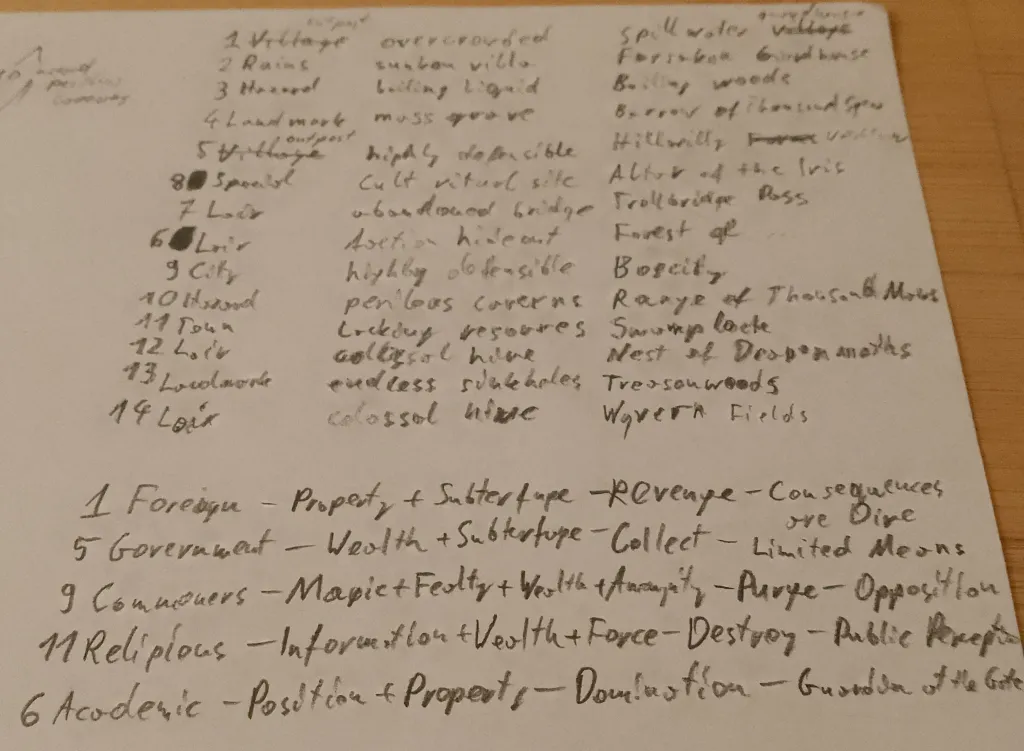 outpost
1 Village overcrowded Spillwater Village
2 Ruins sunken villa Forsaken Guardhouse
3 Hazard boiling liquid Boiling woods
4 Landmark moss grove Barrow of Thousand
outpost
5 Village highly defensible Hillwilly
8 Special Cult ritual site Altar of the Iris
7 Lair abandoned bridge Trollbridge Pass
6 Lair faction hideout Forest of
9 City highly defensible Bogcity
10 Hazard perilous caverns Range of Thousand Maws
11 Town Lacking resources Swamplock
12 Lair collossol hive Nest of
13 Landmark endless sinkholes Treasonwoods
14 Lair colossol hive Wyvern Fields
1 Foreign - Property + Subterfuge - Revenge - Consequences
are Dire
5 Government - Wealth + Subterfuge - Collect - Limited Means
9 Commoners - Magic + Fealty + Wealth + - Purge - Opposition
11 Religious - Information + Wealth + Force - Destroy - Public Perception
6 Academic - Position + Property - Domination - Guardian of the Gate